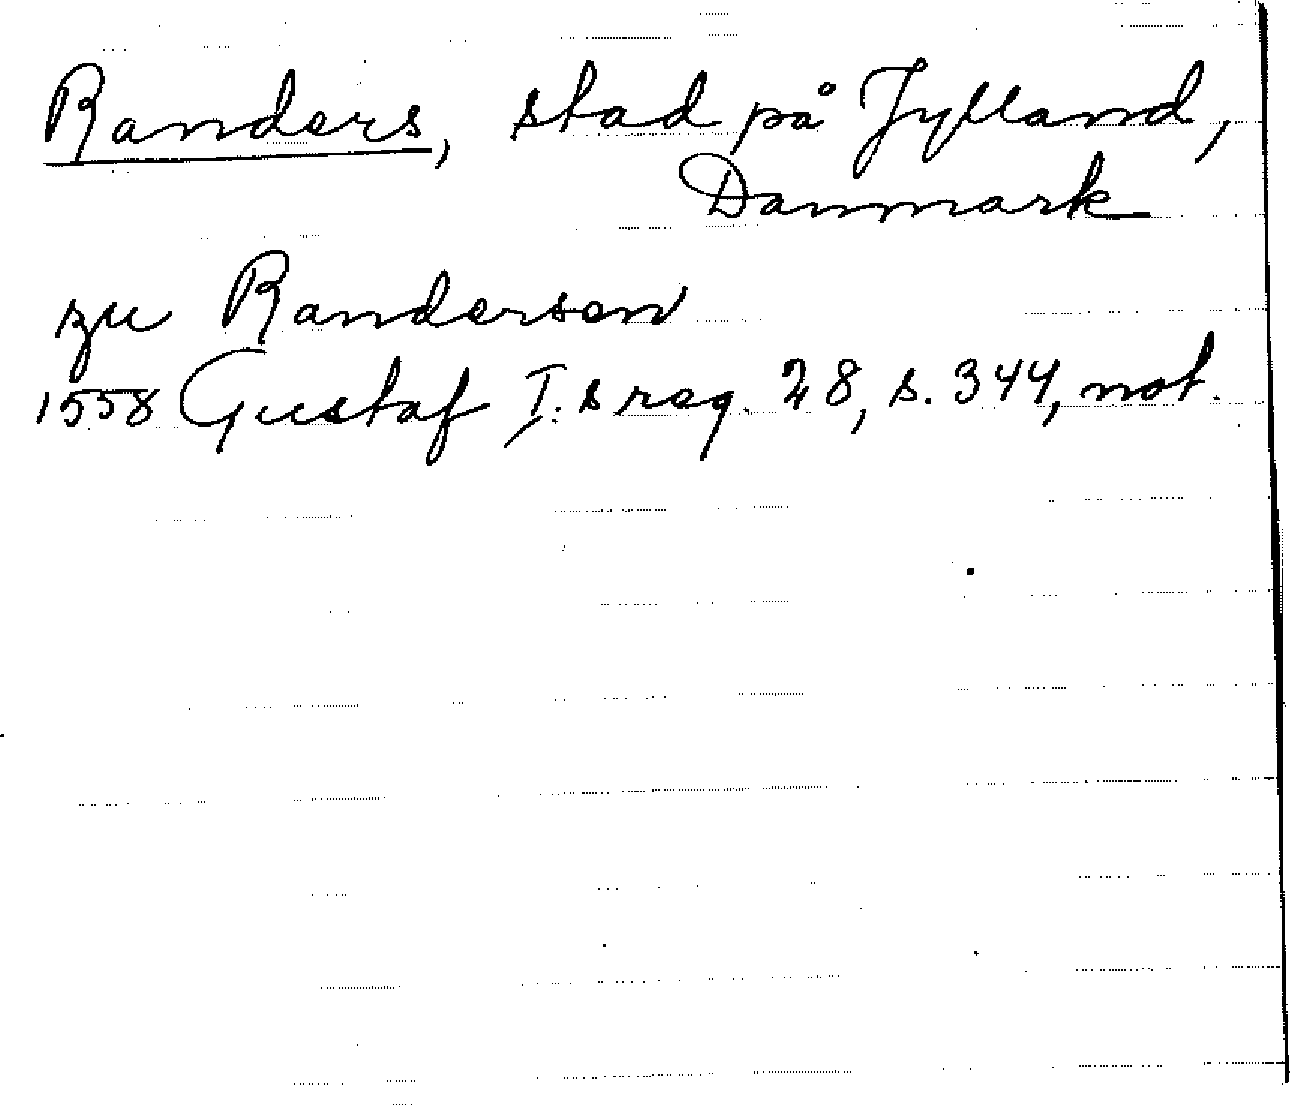 Randers, stad på Jylland,
Danmark
zu Randersen
1558 Gustaf I:s reg. 28, s. 344, not.